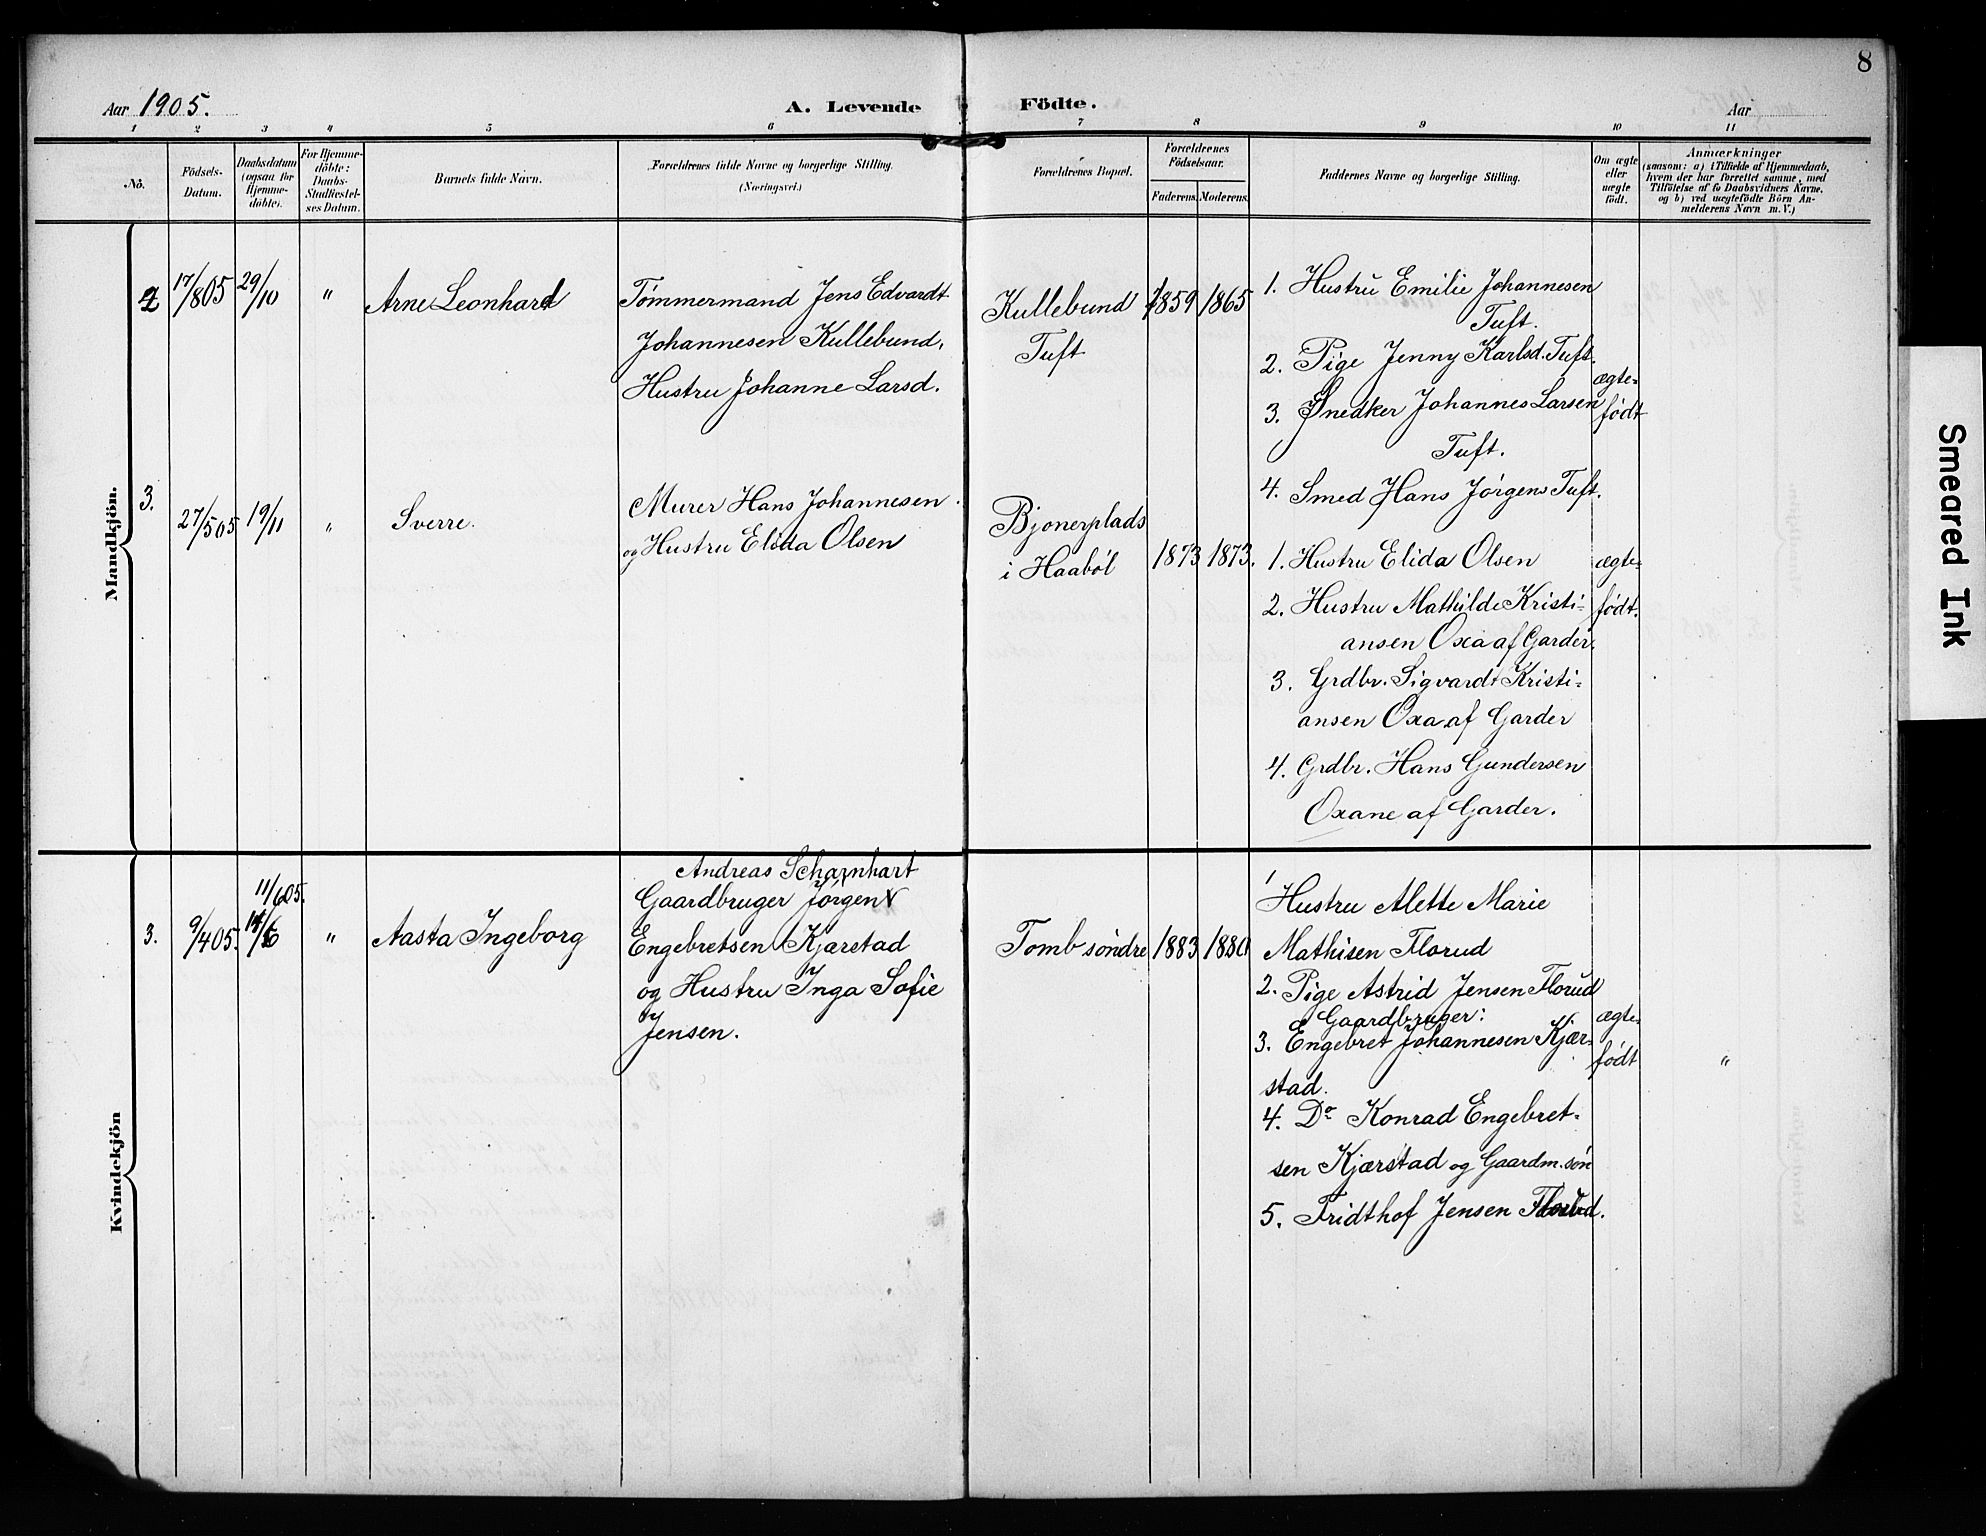 8
Aar 1905. A. Levende Födte. Aar
1 2 3 4 5 6 7 8 9 10 11
No.
Födsels-
Datum.
Daabsdatum
(ogsaa for
Hjemme-
döbte).
For Hjemme-
döbte:
Daabs-
Stadfæstel-
ses Datum.
Barnets fulde Navn.
Forældrenes fulde Navne og borgerlige Stilling.
(Næringsvei.)
Forældrenes Bopæl.
Forældrenes
Födselsaar.
Faderens. Moderens.
Faddernes Navne og borgerlige Stilling.
Om ægte
eller
uægte
födt.
Anmærkninger
(saasom: a) i Tilfælde af Hjemmedaab,
hvem der har forrettet samme, med
Tilföielse af to Daabsvidners Navne,
og b) ved uægtefödte Börn An-
melderens Navn m. V.)
Mandkjön.
2 17/805 29/10 " Arne Leonhard
Tømmermand Jens Edvardt
Johannesen Kullebund,
Hustru Johanne Larsd.
Kullebund
Tuft
1859 1865
1. Hustru Emilie Johannesen
Tuft.
2. Pige Jenny Karlsd. Tuft.
3. Snedker Johannes Larsen
Tuft.
4. Smed Hans Jørgens Tuft.
ægte-
født
3. 27/505 19/11 " Sverre.
Murer Hans Johannesen
og Hustru Elida Olsen
Bjonerplads
i Haabøl
1873 1873.
1. Hustru Elida Olsen
2. Hustru Mathilde Kristi-
ansen Oxa af Garder.
3. Grdbr. Sigvardt Kristi-
ansen Oxa af Garder
4. Grdbr. Hans Gundersen
Oxane af Garder.
ægte-
født.
Kvindekjön
3. 9/405. 11/605. " Aasta Ingeborg
Andreas Scharnhart
Gaardbruger Jørgen
Engebretsen Kjærstad
og Hustru Inga Sofie
Jensen.
Tomb søndre 1883 1880
1
Hustru Alette Marie
Mathisen Florud
2. Pige Astrid Jensen Florud
Gaardbruger:
3. Engebret Johannesen Kjær-
stad.
4. Do Konrad Engebret-
sen Kjærstad og Gaardm. søn
5. Fridthof Jensen Florud.
ægte-
født
"
Smeared Ink